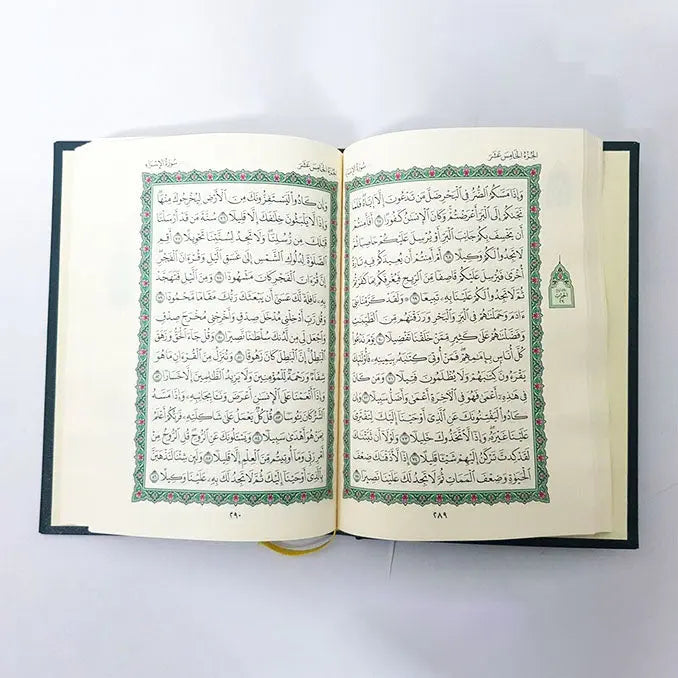 الجُزْءُ الخَامِسَ عَشَرَ
سُورَةُ الإِسْرَاءِ
وَإِذَا مَسَّكُمُ ٱلضُّرُّ فِي ٱلۡبَحۡرِ ضَلَّ مَن تَدۡعُونَ إِلَّآ إِيَّاهُۖ فَلَمَّا
نَجَّىٰكُمۡ إِلَى ٱلۡبَرِّ أَعۡرَضۡتُمۡۚ وَكَانَ ٱلۡإِنسَٰنُ كَفُورًا ٦٧ أَفَأَمِنتُمۡ
أَن يَخۡسِفَ بِكُمۡ جَانِبَ ٱلۡبَرِّ أَوۡ يُرۡسِلَ عَلَيۡكُمۡ حَاصِبٗا ثُمَّ
لَا تَجِدُواْ لَكُمۡ وَكِيلًا ٦٨ أَمۡ أَمِنتُمۡ أَن يُعِيدَكُمۡ فِيهِ تَارَةً
أُخۡرَىٰ فَيُرۡسِلَ عَلَيۡكُمۡ قَاصِفٗا مِّنَ ٱلرِّيحِ فَيُغۡرِقَكُم بِمَا كَفَرۡتُمۡ
ثُمَّ لَا تَجِدُواْ لَكُمۡ عَلَيۡنَا بِهِۦ تَبِيعٗا ٦٩ ۞ وَلَقَدۡ كَرَّمۡنَا بَنِيٓ
ءَادَمَ وَحَمَلۡنَٰهُمۡ فِي ٱلۡبَرِّ وَٱلۡبَحۡرِ وَرَزَقۡنَٰهُم مِّنَ ٱلطَّيِّبَٰتِ
وَفَضَّلۡنَٰهُمۡ عَلَىٰ كَثِيرٖ مِّمَّنۡ خَلَقۡنَا تَفۡضِيلٗا ٧٠ يَوۡمَ نَدۡعُواْ
كُلَّ أُنَاسِۭ بِإِمَٰمِهِمۡۖ فَمَنۡ أُوتِيَ كِتَٰبَهُۥ بِيَمِينِهِۦ فَأُوْلَٰٓئِكَ
يَقۡرَءُونَ كِتَٰبَهُمۡ وَلَا يُظۡلَمُونَ فَتِيلٗا ٧١ وَمَن كَانَ
فِي هَٰذِهِۦٓ أَعۡمَىٰ فَهُوَ فِي ٱلۡأٓخِرَةِ أَعۡمَىٰ وَأَضَلُّ سَبِيلٗا ٧٢ وَإِن
كَادُواْ لَيَفۡتِنُونَكَ عَنِ ٱلَّذِيٓ أَوۡحَيۡنَآ إِلَيۡكَ لِتَفۡتَرِيَ
عَلَيۡنَا غَيۡرَهُۥۖ وَإِذٗا لَّٱتَّخَذُوكَ خَلِيلٗا ٧٣ وَلَوۡلَآ أَن ثَبَّتۡنَٰكَ
لَقَدۡ كِدتَّ تَرۡكَنُ إِلَيۡهِمۡ شَيۡـٔٗا قَلِيلًا ٧٤ إِذٗا لَّأَذَقۡنَٰكَ ضِعۡفَ
ٱلۡحَيَوٰةِ وَضِعۡفَ ٱلۡمَمَاتِ ثُمَّ لَا تَجِدُ لَكَ عَلَيۡنَا نَصِيرٗا ٧٥
الحزب
٢٩
٢٨٩
الجُزْءُ الخَامِسَ عَشَرَ
سُورَةُ الإِسْرَاءِ
وَإِن كَادُواْ لَيَسۡتَفِزُّونَكَ مِنَ ٱلۡأَرۡضِ لِيُخۡرِجُوكَ مِنۡهَاۖ
وَإِذٗا لَّا يَلۡبَثُونَ خِلَٰفَكَ إِلَّا قَلِيلٗا ٧٦ سُنَّةَ مَن قَدۡ أَرۡسَلۡنَا
قَبۡلَكَ مِن رُّسُلِنَاۖ وَلَا تَجِدُ لِسُنَّتِنَا تَحۡوِيلًا ٧٧ أَقِمِ
ٱلصَّلَوٰةَ لِدُلُوكِ ٱلشَّمۡسِ إِلَىٰ غَسَقِ ٱلَّيۡلِ وَقُرۡءَانَ ٱلۡفَجۡرِۖ
إِنَّ قُرۡءَانَ ٱلۡفَجۡرِ كَانَ مَشۡهُودٗا ٧٨ وَمِنَ ٱلَّيۡلِ فَتَهَجَّدۡ
بِهِۦ نَافِلَةٗ لَّكَ عَسَىٰٓ أَن يَبۡعَثَكَ رَبُّكَ مَقَامٗا مَّحۡمُودٗا ٧٩
وَقُل رَّبِّ أَدۡخِلۡنِي مُدۡخَلَ صِدۡقٖ وَأَخۡرِجۡنِي مُخۡرَجَ صِدۡقٖ
وَٱجۡعَل لِّي مِن لَّدُنكَ سُلۡطَٰنٗا نَّصِيرٗا ٨٠ وَقُلۡ جَآءَ ٱلۡحَقُّ وَزَهَقَ
ٱلۡبَٰطِلُۚ إِنَّ ٱلۡبَٰطِلَ كَانَ زَهُوقٗا ٨١ وَنُنَزِّلُ مِنَ ٱلۡقُرۡءَانِ مَا هُوَ
شِفَآءٞ وَرَحۡمَةٞ لِّلۡمُؤۡمِنِينَ وَلَا يَزِيدُ ٱلظَّٰلِمِينَ إِلَّا خَسَارٗا ٨٢
وَإِذَآ أَنۡعَمۡنَا عَلَى ٱلۡإِنسَٰنِ أَعۡرَضَ وَنَـَٔا بِجَانِبِهِۦ وَإِذَا مَسَّهُ
ٱلشَّرُّ كَانَ يَـُٔوسٗا ٨٣ قُلۡ كُلّٞ يَعۡمَلُ عَلَىٰ شَاكِلَتِهِۦ فَرَبُّكُمۡ أَعۡلَمُ
بِمَنۡ هُوَ أَهۡدَىٰ سَبِيلٗا ٨٤ وَيَسۡـَٔلُونَكَ عَنِ ٱلرُّوحِۖ قُلِ ٱلرُّوحُ مِنۡ
أَمۡرِ رَبِّي وَمَآ أُوتِيتُم مِّنَ ٱلۡعِلۡمِ إِلَّا قَلِيلٗا ٨٥ وَلَئِن شِئۡنَا لَنَذۡهَبَنَّ
بِٱلَّذِيٓ أَوۡحَيۡنَآ إِلَيۡكَ ثُمَّ لَا تَجِدُ لَكَ بِهِۦ عَلَيۡنَا وَكِيلًا ٨٦
٢٩٠